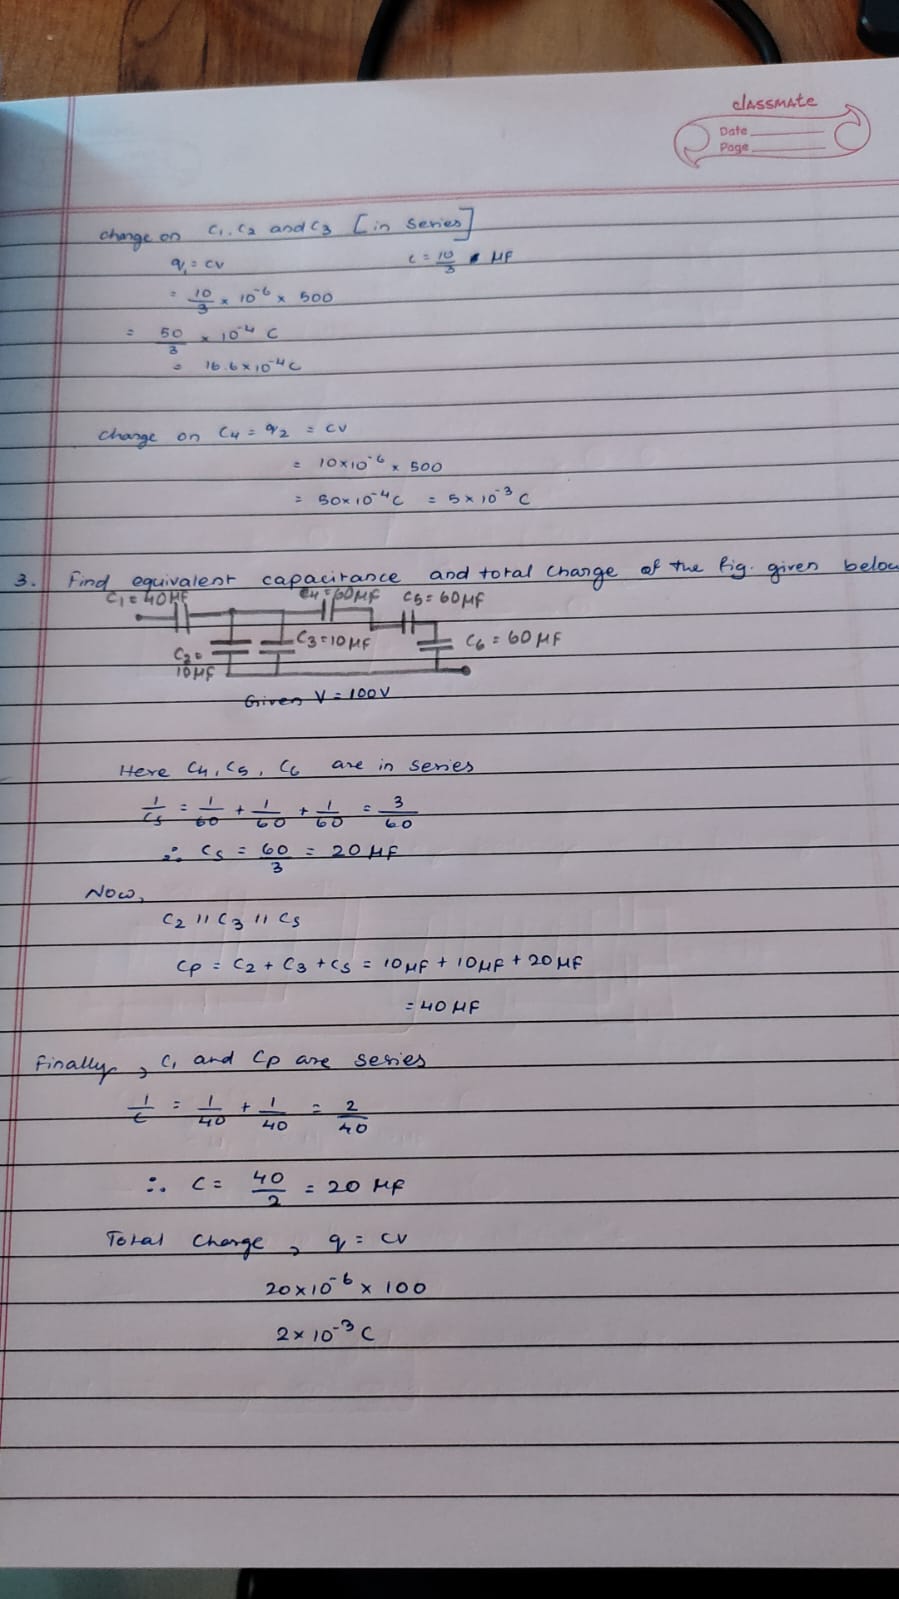 classmate
Date
Page
Charge on C1, C2 and C3 [in series]
q1 = CV C = 10/3 μF
= 10/3 × 10^-6 × 500
= 50/3 × 10^-4 C
= 16.6 × 10^-4 C
Charge on C4 = q2 = CV
= 10×10^-6 × 500
= 50×10^-4 C = 5 × 10^-3 C
3. Find equivalent capacitance and total charge of the fig. given below
C1 = 40μF C4 = 60μF C5 = 60μF
C3 = 10μF C6 = 60μF
C2 =
10μF
Given V = 100V
Here C4, C5, C6 are in series
1/Cs = 1/60 + 1/60 + 1/60 = 3/60
∴ Cs = 60/3 = 20 μF
Now,
C2 || C3 || Cs
Cp = C2 + C3 + Cs = 10μF + 10μF + 20μF
= 40 μF
Finally, C1 and Cp are series
1/C = 1/40 + 1/40 = 2/40
∴ C = 40/2 = 20 μF
Total Charge, q = CV
20×10^-6 × 100
2×10^-3 C